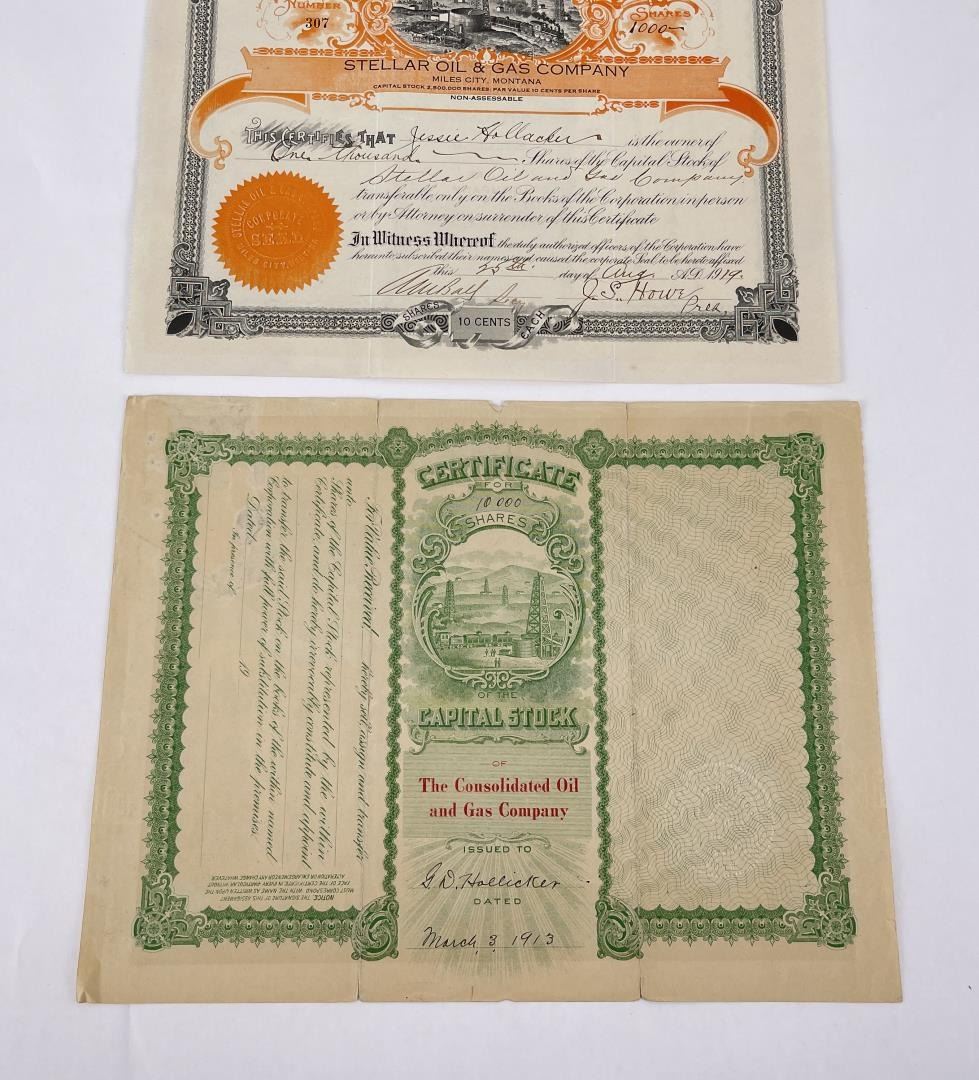 NUMBER
307
SHARES
1000
STELLAR OIL & GAS COMPANY
MILES CITY, MONTANA
CAPITAL STOCK 2,500,000 SHARES. PAR VALUE 10 CENTS PER SHARE
NON-ASSESSABLE
THIS CERTIFIES THAT Jessie Hollacker is the owner of
One thousand Shares of the Capital Stock of
Stellar Oil and Gas Company
transferable only on the Books of the Corporation in person
or by Attorney on surrender of this Certificate
In Witness Whereof the duly authorized officers of the Corporation have
hereunto subscribed their names and caused the corporate Seal to be hereto affixed
this 25th day of Aug A.D. 1919.
J. S. Howe
Pres.
STELLAR OIL & GAS
CORPORATE
SEAL
MILES CITY
SHARES
10 CENTS
EACH
CERTIFICATE
FOR
10 000
SHARES
OF THE
CAPITAL STOCK
OF
The Consolidated Oil
and Gas Company
ISSUED TO
G. D. Hollicker
DATED
March, 3, 1913
For Value Received, hereby sell, assign and transfer
unto
Shares of the Capital Stock represented by the within
Certificate, and do hereby irrevocably constitute and appoint
to transfer the said Stock on the books of the within named
Corporation with full power of substitution in the premises.
Dated 19
In presence of
NOTICE. THE SIGNATURE OF THIS ASSIGNMENT
MUST CORRESPOND WITH THE NAME AS WRITTEN UPON THE
FACE OF THE CERTIFICATE IN EVERY PARTICULAR WITHOUT
ALTERATION OR ENLARGEMENT OR ANY CHANGE WHATEVER.